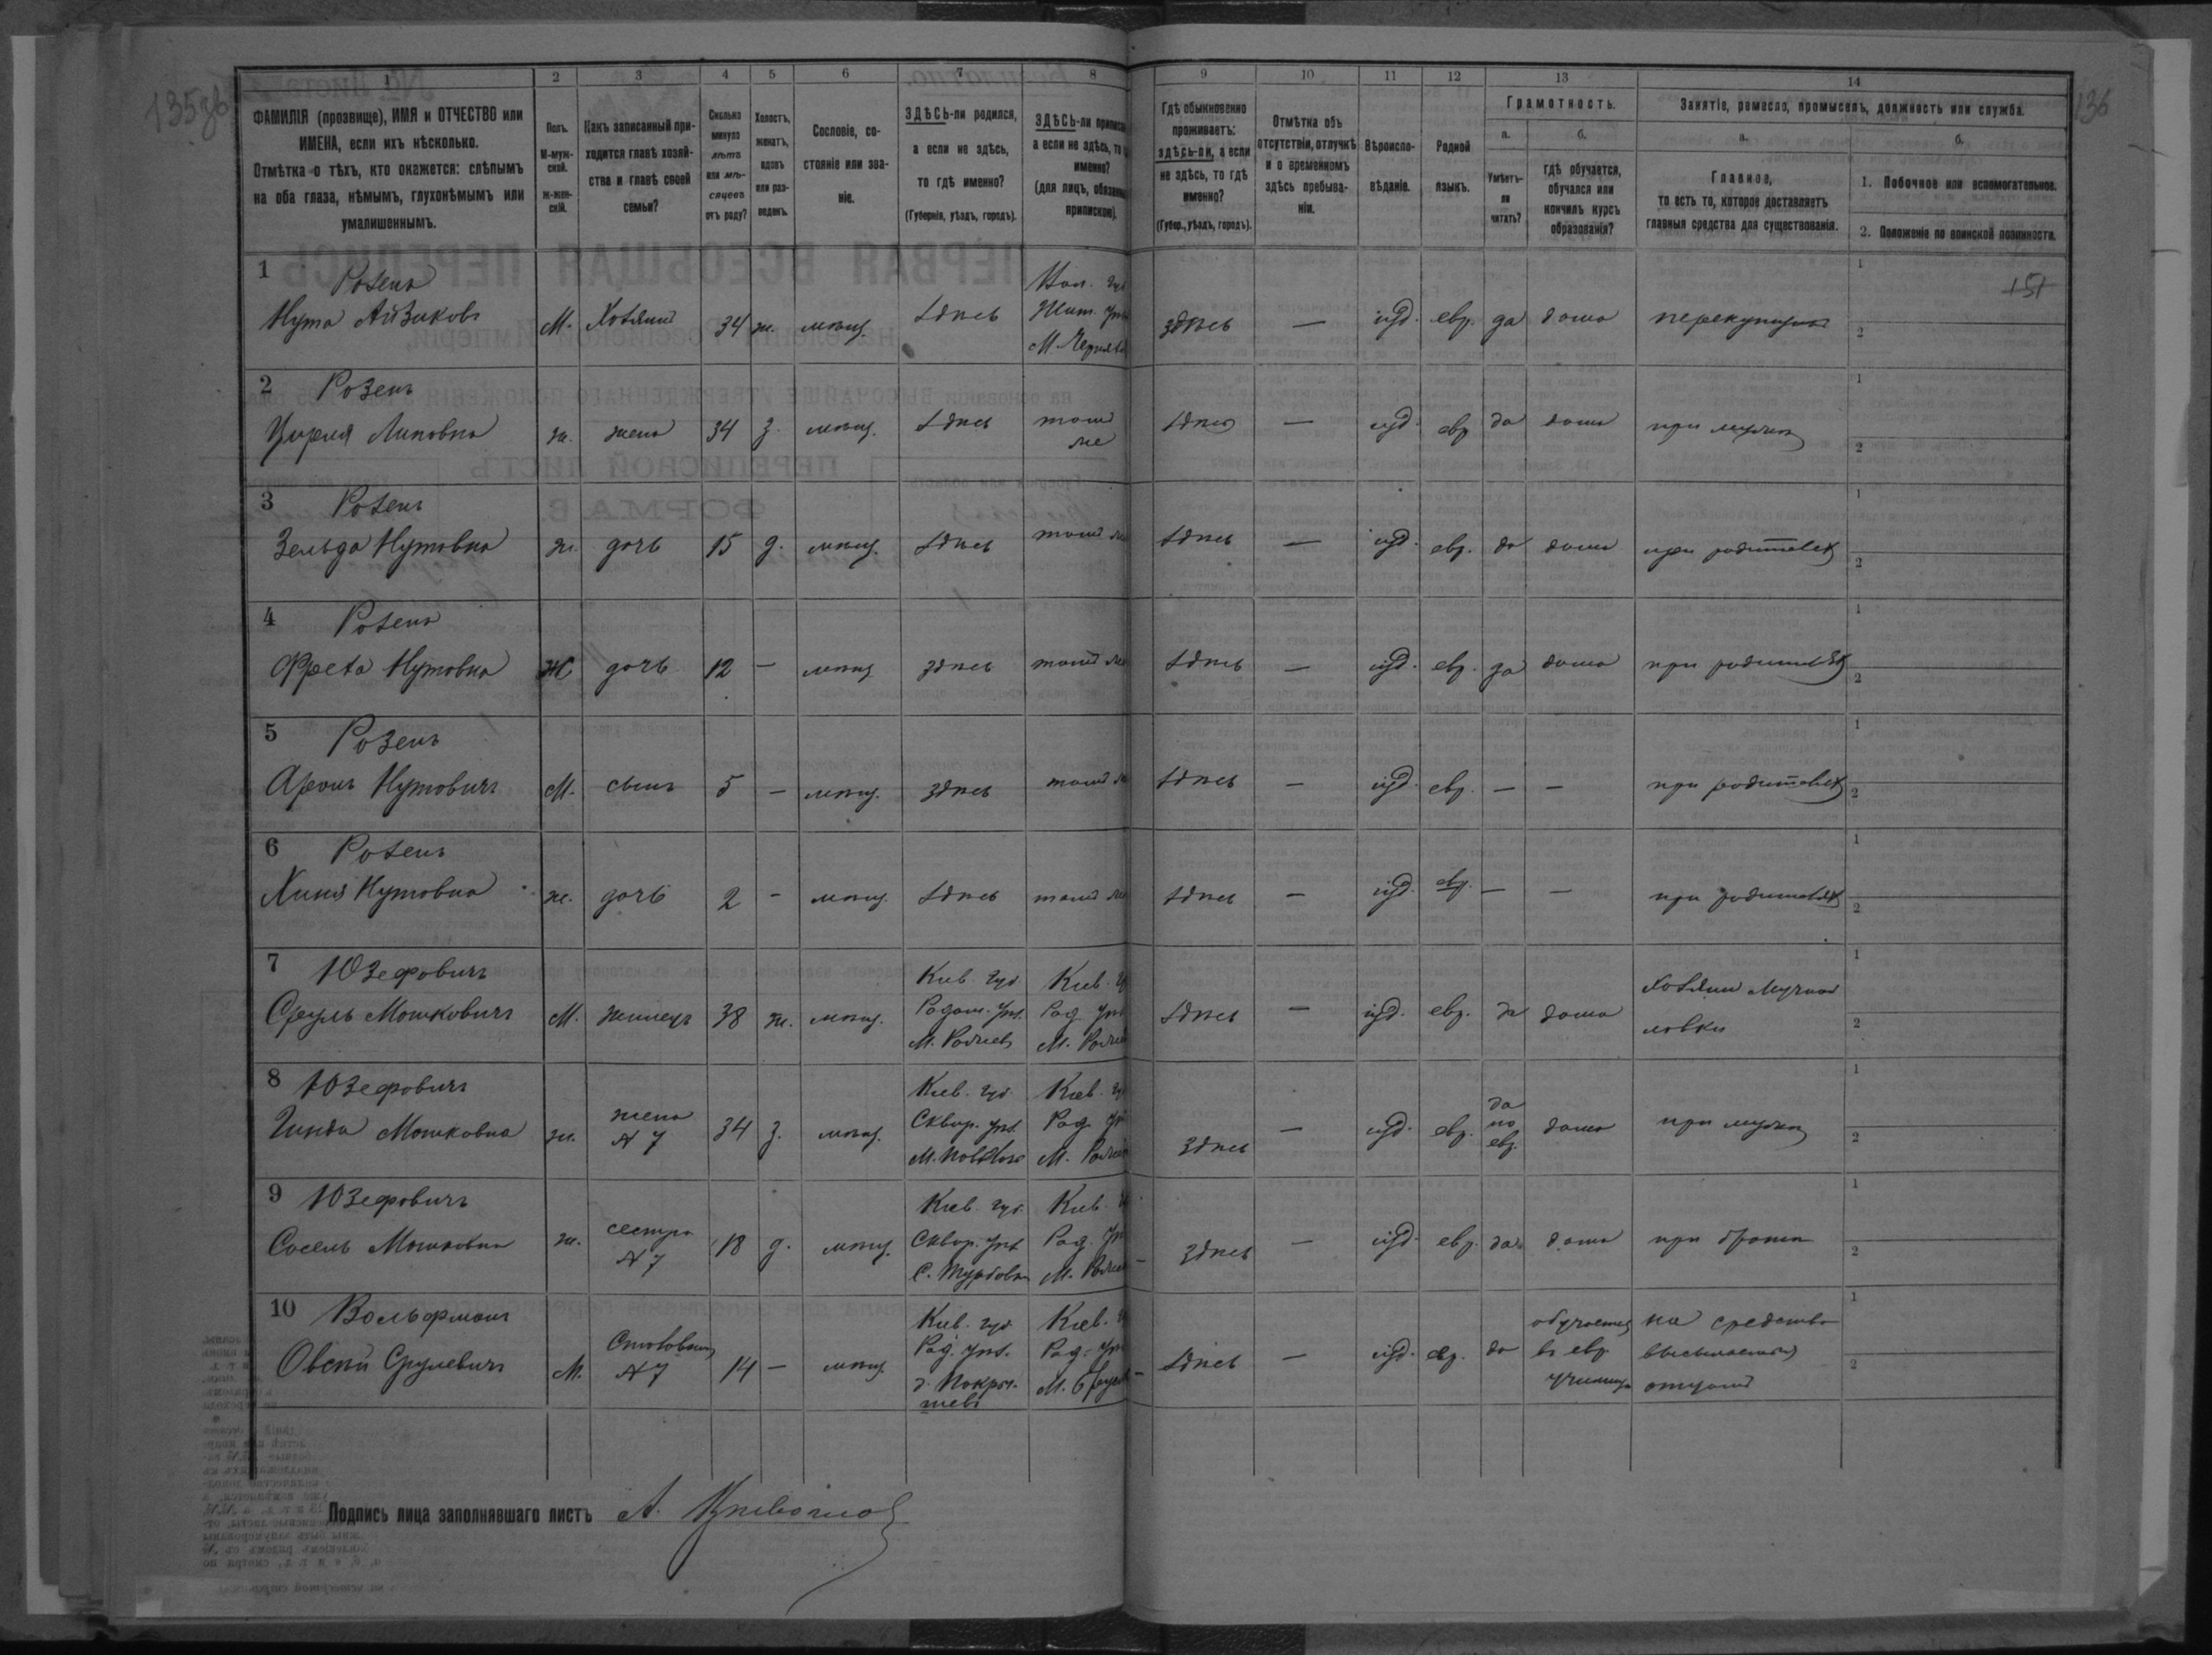 135зв
136
1 2 3 4 5 6 7 8 9 10 11 12 13 14
ФАМИЛІЯ (прозвище), ИМЯ и ОТЧЕСТВО или
ИМЕНА, если ихъ нѣсколько.
Отмѣтка о тѣхъ, кто окажется: слѣпымъ
на оба глаза, нѣмымъ, глухонѣмымъ или
умалишеннымъ.
Полъ.
М-муж-
ской.
ж-жен-
скій.
Какъ записанный при-
ходится главѣ хозяй-
ства и главѣ своей
семьи?
Сколько
минуло
лѣтъ
или мѣ-
сяцевъ
отъ роду?
Холостъ,
женатъ,
вдовъ
или раз-
веденъ.
Сословіе, со-
стояніе или зва-
ніе.
ЗДѢСЬ-ли родился,
а если не здѣсь,
то гдѣ именно?
(Губернія, уѣздъ, городъ).
ЗДѢСЬ-ли
а если не здѣсь, то
именно?
(для лицъ,
припискою).
Гдѣ обыкновенно
проживаетъ:
здѣсь-ли, а если
не здѣсь, то гдѣ
именно?
(Губер., уѣздъ, городъ).
Отмѣтка объ
отсутствіи, отлучкѣ
и о временномъ
здѣсь пребыва-
ніи.
Вѣроиспо-
вѣданіе.
Родной
языкъ.
Грамотность.
а.
Умѣетъ-
ли
читать?
б.
гдѣ обучается,
обучался или
кончилъ курсъ
образованія?
Занятіе, ремесло, промыселъ, должность или служба.
а.
Главное,
то есть то, которое доставляетъ
главныя средства для существованія.
б.
1. Побочное или вспомогательное.
2. Положеніе по воинской повинности.
1 Розенъ
Нута Айзиковъ М. Хозяинъ 34 ж. мѣщ. здѣсь
Жит.
здѣсь — іуд. евр. да дома
151
2 Розенъ
Цирля Липовна ж. жена 34 з. мѣщ. здѣсь тамъ
же
здѣсь — іуд. евр да дома при мужѣ
3 Розенъ
Зельда Нутовна ж. дочь 15 д. мѣщ. здѣсь тамъ
здѣсь — іуд. евр. да дома при родителях
4 Розенъ
Нутовна Ж дочь 12 — мѣщ здѣсь тамъ
здѣсь — іуд. евр. да дома при родителях
5 Розенъ
Аронъ Нутовичъ М. сынъ 5 — мѣщ. здѣсь тамъ
здѣсь — іуд. евр. — — при родителях
6 Розенъ
Хиня Нутовна ж. дочь 2 — мѣщ. здѣсь тамъ
здѣсь — іуд. евр. — — при родителях
7 Юзефовичъ
Сруль Мошковичъ М. жилецъ 38 ж. мѣщ.
Кіев. губ.
Радом. уѣз.
Кіев.
Рад. уѣз
здѣсь — іуд. евр. да дома
хозяинъ мучной
лавки
8 Юзефовичъ
Гинда Мошковна ж. жена
№ 7 34 з. мѣщ.
Кіев. губ.
Сквир. уѣз.
Кіев.
Рад.
здѣсь — іуд. евр. да
по
евр. дома при мужѣ
9 Юзефовичъ
Сосель Мошковна ж. сестра
№ 7 18 д. мѣщ.
Кіев. губ.
Сквир. уѣз
Кіев.
Рад.
здѣсь — іуд. евр. да дома при братѣ
10 Вольфманъ
Овсѣй Срулевичъ М. № 7 14 — мѣщ.
Кіев. губ
Рад. уѣз.
д. Покры-
шевъ
Кіев.
Рад. уѣз
здѣсь — іуд. евр. да
обучается
въ евр.
училищѣ
на средства
отцомъ
Подпись лица заполнявшаго листъ А.